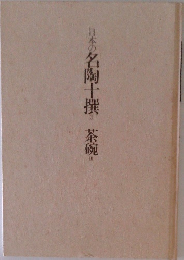 日本の名陶十撰 茶碗